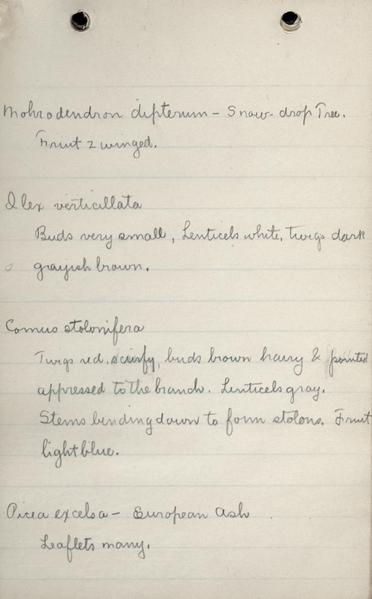 Mohrodendron dipterum - Snow-drop Tree.
Fruit 2 winged.
Ilex verticillata
Buds very small, Lenticels white, twigs dark
grayish brown.
Cornus stolonifera
Twigs red. scurfy, buds brown hairy & pointed
appressed to the branch. Lenticels gray.
Stems bending down to form stolons. Fruit
light blue.
Picea excelsa - European Ash
Leaflets many.